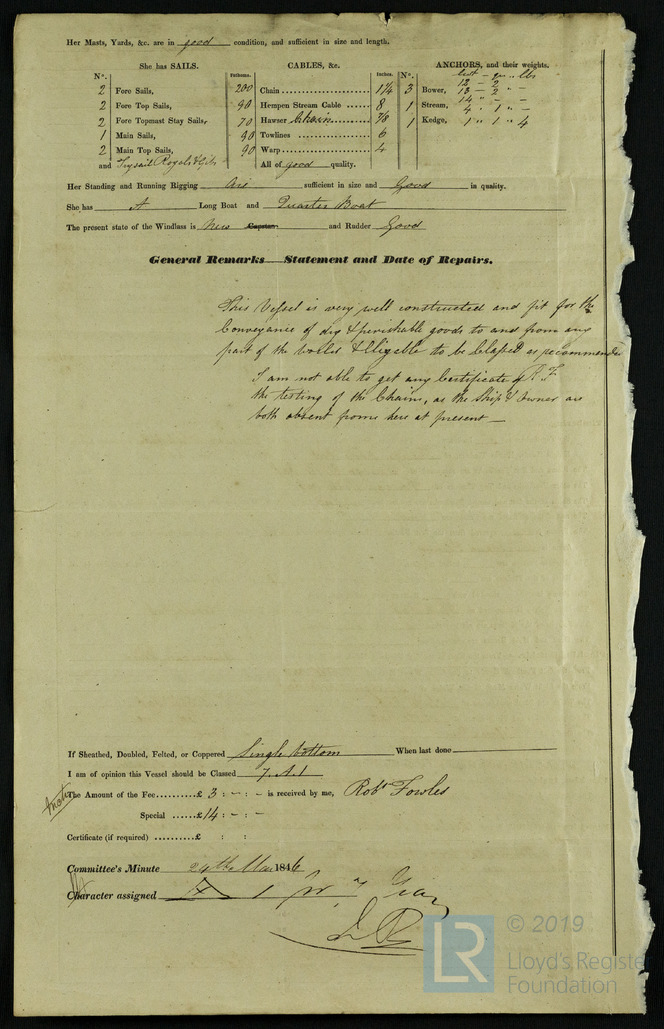 Her Masts, Yards, &c. are in good condition, and sufficient in size and length.
She has SAILS. CABLES, &c. ANCHORS, and their weights.
N°. Fathoms. Inches. N°. cwt - qr " lbs
2 Fore Sails, 200 Chain 1 1/4 3 Bower, 12 - 2
2 Fore Top Sails, 90 Hempen Stream Cable 8 13 - 2 " -
2 Fore Topmast Stay Sails, 70 Hawser Chain 7/8 1 Stream, 14 " - " -
1 Main Sails, 90 Towlines 6 4 " 1 " -
2 Main Top Sails, 90 Warp 4 1 Kedge, 1 " 1 " 4
and Trysail Royals & Gibs All of good quality.
Her Standing and Running Rigging are sufficient in size and Good in quality.
She has A Long Boat and Quarter Boat
The present state of the Windlass is New Capstan and Rudder Good
General Remarks Statement and Date of Repairs.
This Vessel is very well constructed and fit for the
Conveyance of dry & perishable goods to and from any
part of the world & Eligible to be Classed as recommended
I am not able to get any Certificate of
the testing of the Chains, as the Ship & Owner are
both absent from here at present —
If Sheathed, Doubled, Felted, or Coppered Single bottom When last done
I am of opinion this Vessel should be Classed 7. A. 1
The Amount of the Fee..........£ 3 : - : - is received by me, Robt Fowles
Special ......£14 : - : -
Certificate (if required) ..........£ : :
Committee's Minute 24th Mar 1846
Character assigned A 1 for 7 Years
© 2019
LR
Lloyd's Register
Foundation